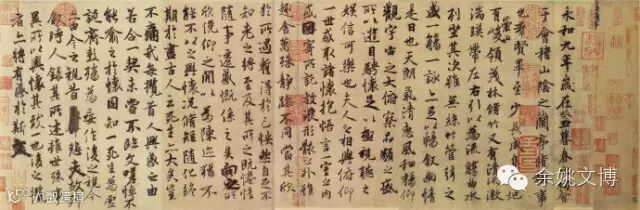 永和九年歲在癸丑暮春之初會
于會稽山陰之蘭亭脩稧事
也羣賢畢至少長咸集此地
有崇山峻領茂林脩竹又有清流激
湍暎帶左右引以為流觴曲水
列坐其次雖無絲竹管弦之
盛一觴一詠亦足以暢敘幽情
是日也天朗氣清惠風和暢仰
觀宇宙之大俯察品類之盛
所以遊目騁懷足以極視聽之
娛信可樂也夫人之相與俯仰
一世或取諸懷抱悟言一室之內
或因寄所託放浪形骸之外雖
趣舍萬殊靜躁不同當其欣
於所遇蹔得於己怏然自足不
知老之將至及其所之既惓情
隨事遷感慨係之矣向之所
欣俛仰之閒以為陳迹猶不
能不以之興懷況脩短隨化終
期於盡古人云死生亦大矣豈
不痛哉每攬昔人興感之由
若合一契未嘗不臨文嗟悼不
能喻之於懷固知一死生為虛
誕齊彭殤為妄作後之視今
亦由今之視昔悲夫故列
敘時人錄其所述雖世殊事
異所以興懷其致一也後之攬
者亦將有感於斯文
余姚文博